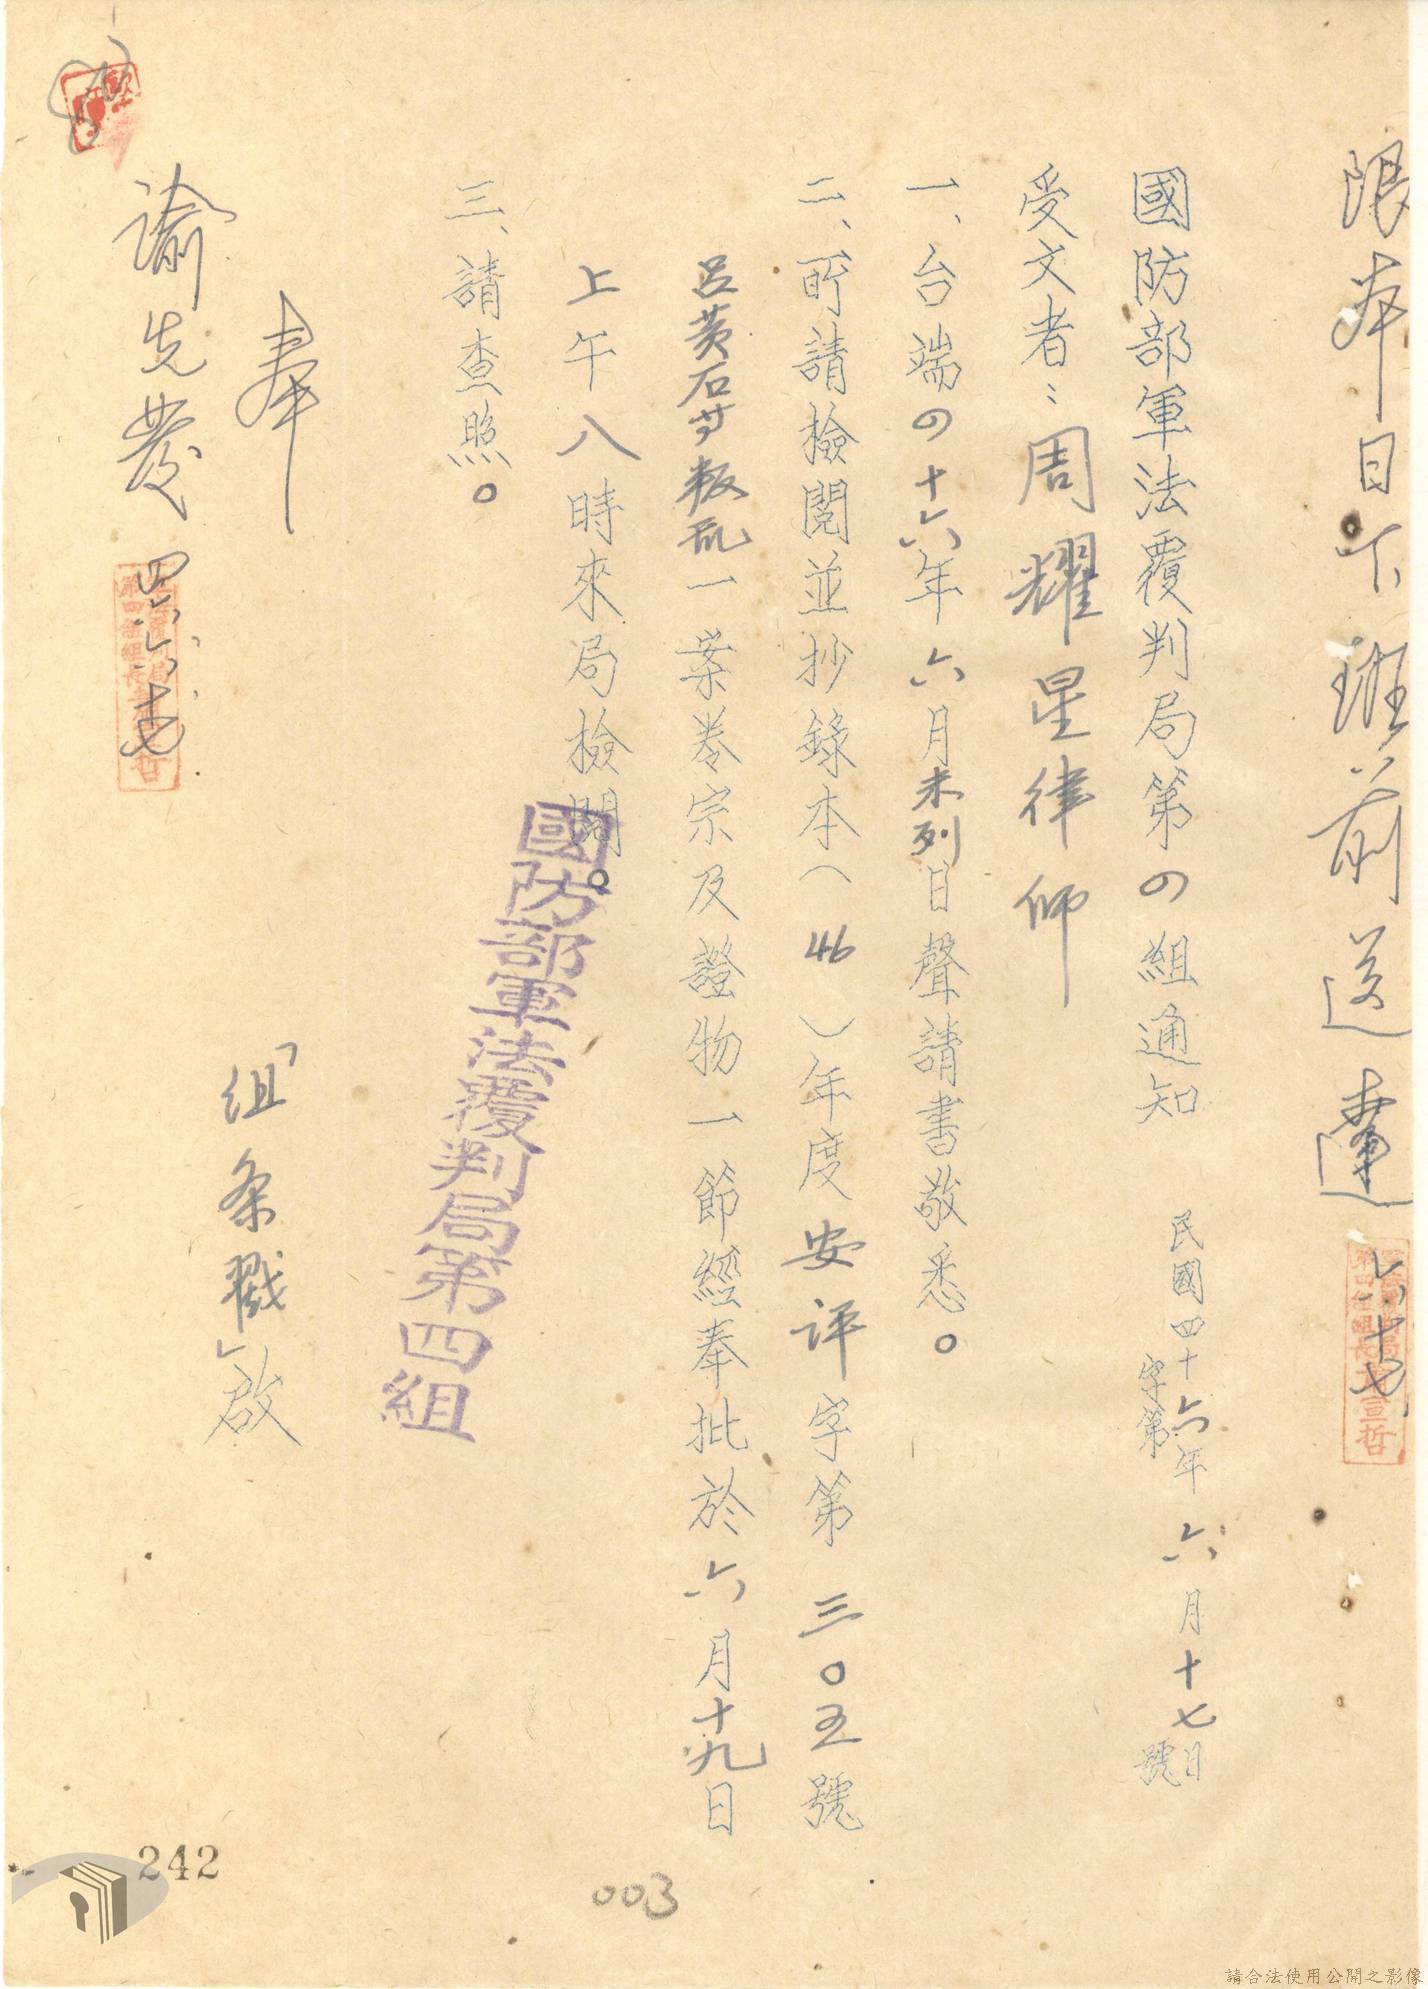 限本日下班前送達 六.十七
國防部軍法覆判局第四組通知
民國四十六年六月十七日
字第 號
受文者：周耀星律师
一、台端四十六年六月未列日聲請書敬悉。
二、所請檢閱並抄錄本（46）年度安评字第三〇五號
呂黄石等叛乱一案卷宗及證物一節經奉批於六月十九日
上午八時來局檢閱。
三、請查照。
國防部軍法覆判局第四組
「組条戳」啟
奉
諭先發 四六、六、十七
242
003
請合法使用公開之影像